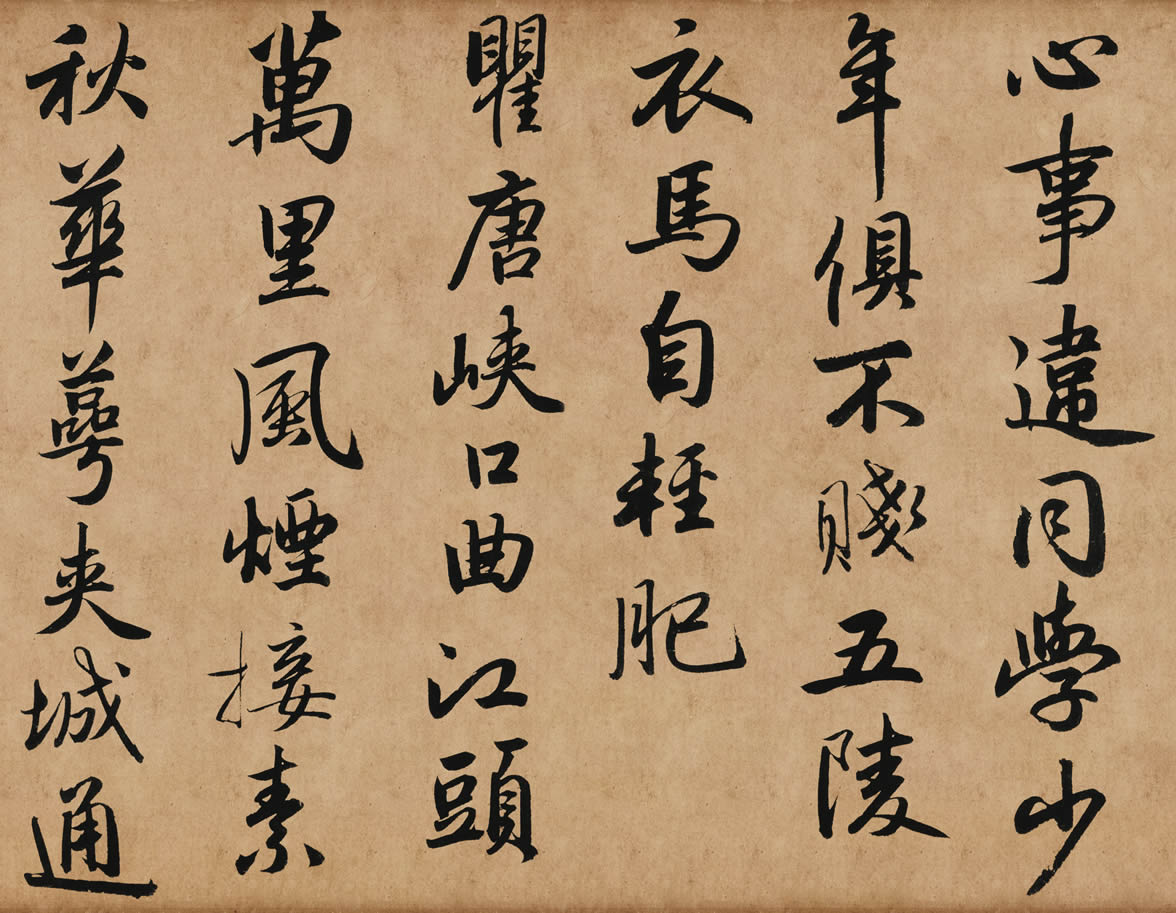 心事違同學少
年俱不賤五陵
衣馬自輕肥
瞿唐峽口曲江頭
萬里風煙接素
秋華萼夾城通